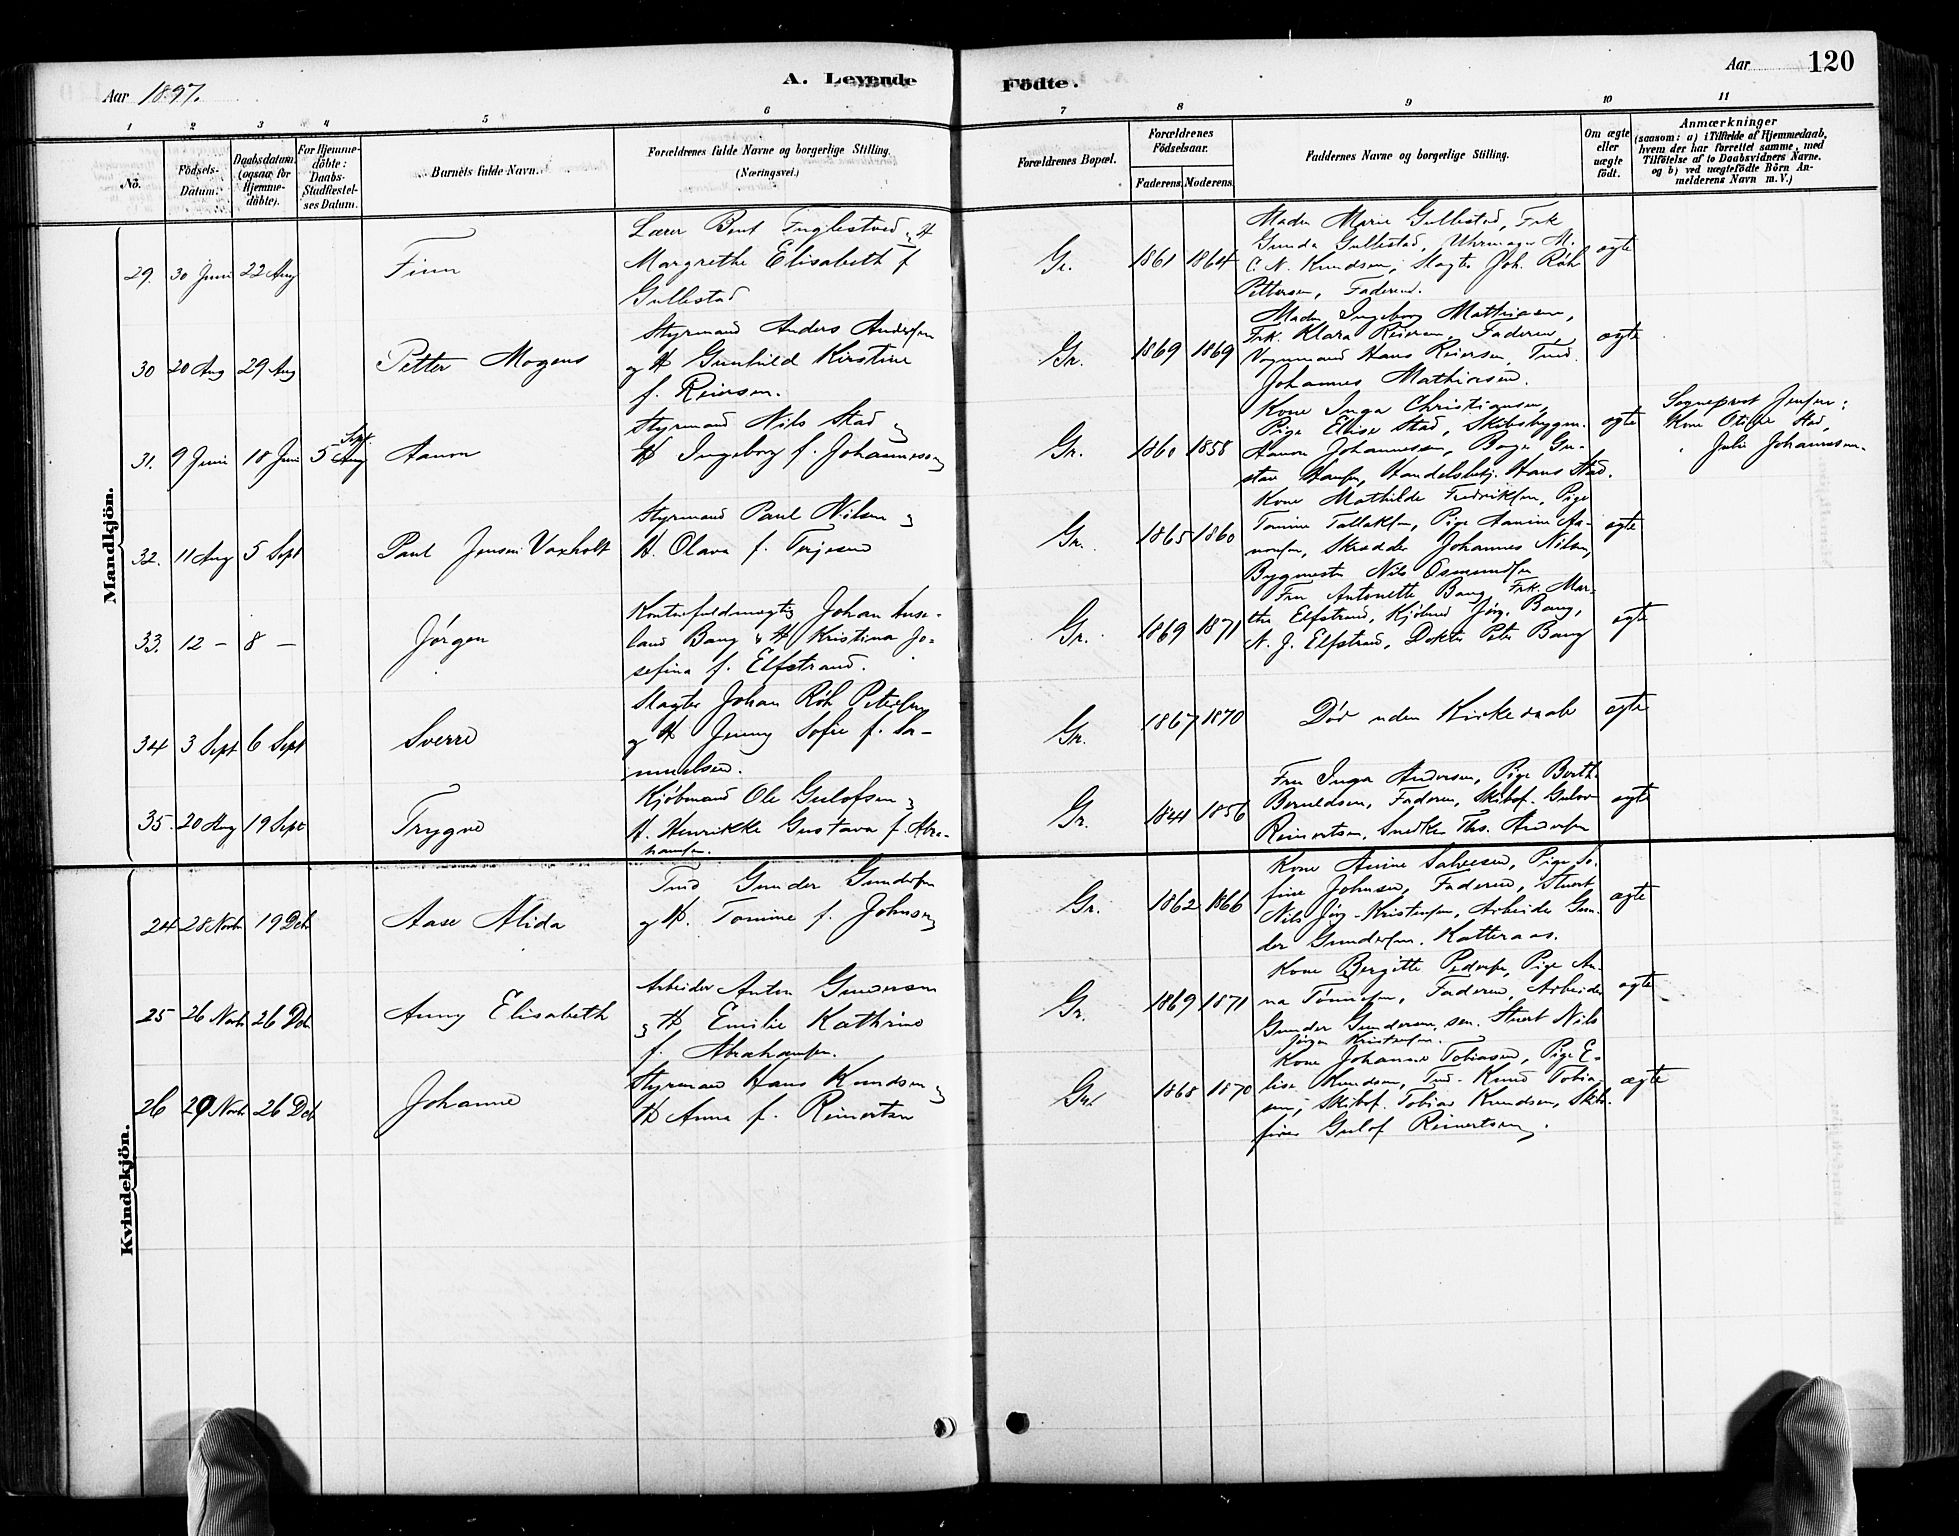 Aar 1897.
A. Levende
Födte.
Aar
120
1 2 3 4 5 6 7 8 9 10 11
No.
Födsels-Datum.
Daabsdatum (ogsaa for Hjemme-döbte).
For Hjemme-döbte: Daabs-Stadfæstel-ses Datum.
Barnets fulde Navn.
Forældrenes fulde Navne og borgerlige Stilling.
(Næringsvei.)
Forældrenes Bopæl.
Forældrenes Födselsaar.
Faderens. Moderens.
Faddernes Navne og borgerlige Stilling.
Om ægte eller uægte födt.
Anmærkninger
(saasom: a) i Tilfælde af Hjemmedaab,
hvem der har forrettet samme, med
Tilföielse af to Daabsvidners Navne.
og b) ved uægtefödte Börn An-
melderens Navn m. V.)
Mandkjön.
29. 30 Juni 22 Aug Finn
Lærer Bent Fuglestved og H
Margrethe Elisabeth f
Gullestad
Gr. 1861 1864
Madm Marie Gullestad, Frk
Gunda Gullestad, Uhrmager M.
C. N. Knudsen, Slagter Joh. Röh
Pettersen, Faderen.
ægte
30 20 Aug 29 Aug Petter Mogens
Styrmand Anders Andersen
og H Gunhild Kirstine
f. Reiersen.
Gr. 1869 1869
Madm Ingeborg Mathiasen,
Frk. Klara Reiersen, Faderen,
Vognmand Hans Reiersen, Tmd.
Johannes Mathiasen.
ægte
31. 9 Juni 18 Juni 5 Sept. Aanon
Styrmand Nils Stad og
H Ingeborg f. Johannessen
Gr. 1860 1858
Kone Inga Christiansen,
Pige Elise Stad, Skibsbygm.
Aanon Johannessen, Gu-
stav Hansen, Handelsbetj. Hans Stad.
ægte
Sogneprest Jensen;
Kone Otilie Stad,
Julie Johannessen.
32. 11 Aug 5 Sept Paul Jensen Vaxholt
Styrmand Paul Nilsen og
H. Olava f. Terjesen
Gr. 1865 1860
Kone Mathilde Fredriksen, Pige
Tomine Tallaksen, Pige Aanine Aa-
nonsen, Skrædder Johannes Nilsen,
Bygmester Nils Osmundsen
ægte
33. 12 – 8 – Jørgen
Kontorfuldmægtig Johan
land Bang & H Kristina Jo-
sefina f. Elfstrand.
Gr. 1869 1871
Fru Antonette Bang, Frk. Mar-
tha Elfstrand, Kjøbmd Jørg. Bang,
N. J. Elfstrand, Doktor Peter Bang
ægte
34 3 Sept 6 Sept Sverre
Slagter Johan Röh Petersen
og H Jenny Sofie f. Sa-
muelsen.
Gr. 1867 1870
Död uden Kirkedaab
ægte
35. 20 Aug 19 Sept Trygve
Kjöbmand Ole Gulofsen og
H. Henrikke Gustava f. Abra-
hamsen.
Gr. 1841 1856
Fru Inga Andersen, Pige Berth.
Berneldsen, Faderen, Skibsf. Gulov
Reinertsen, Snedker Ths. Andersen
ægte
Kvindekjön.
24 28 Novbr 19 Dcbr Aase Alida
Tmd Gunder Gundersen
og H. Tomine f. Johnsen
Gr. 1862 1866
Kone Anine Salvesen, Pige Jo-
fine Johnsen, Faderen, Stuert
Nils Jörg. Kristensen, Arbeider Gun-
der Gundersen, Katteraas.
ægte
25 26 Novbr 26 Dcbr Anny Elisabeth
Arbeider Anton Gundersen
og H Emilie Kathrine
f. Abrahamsen.
Gr. 1869 1871
Kone Bergitte Pedersen, Pige An-
na Tönnesen, Faderen, Arbeider
Gunder Gundersen, sen. Stuert Nils
Jörgen Kristensen.
ægte
26 29 Novbr 26 Dcbr Johanne
Styrmand Hans Knudsen og
H Anna f. Reinertsen
Gr. 1868 1870
Kone Johanne Tobiasen, Pige E-
lise Knudsen, Tmd. Knud Tobia-
sen, Skibsf. Tobias Knudsen, Skibs-
förer Gulof Reinertsen.
ægte